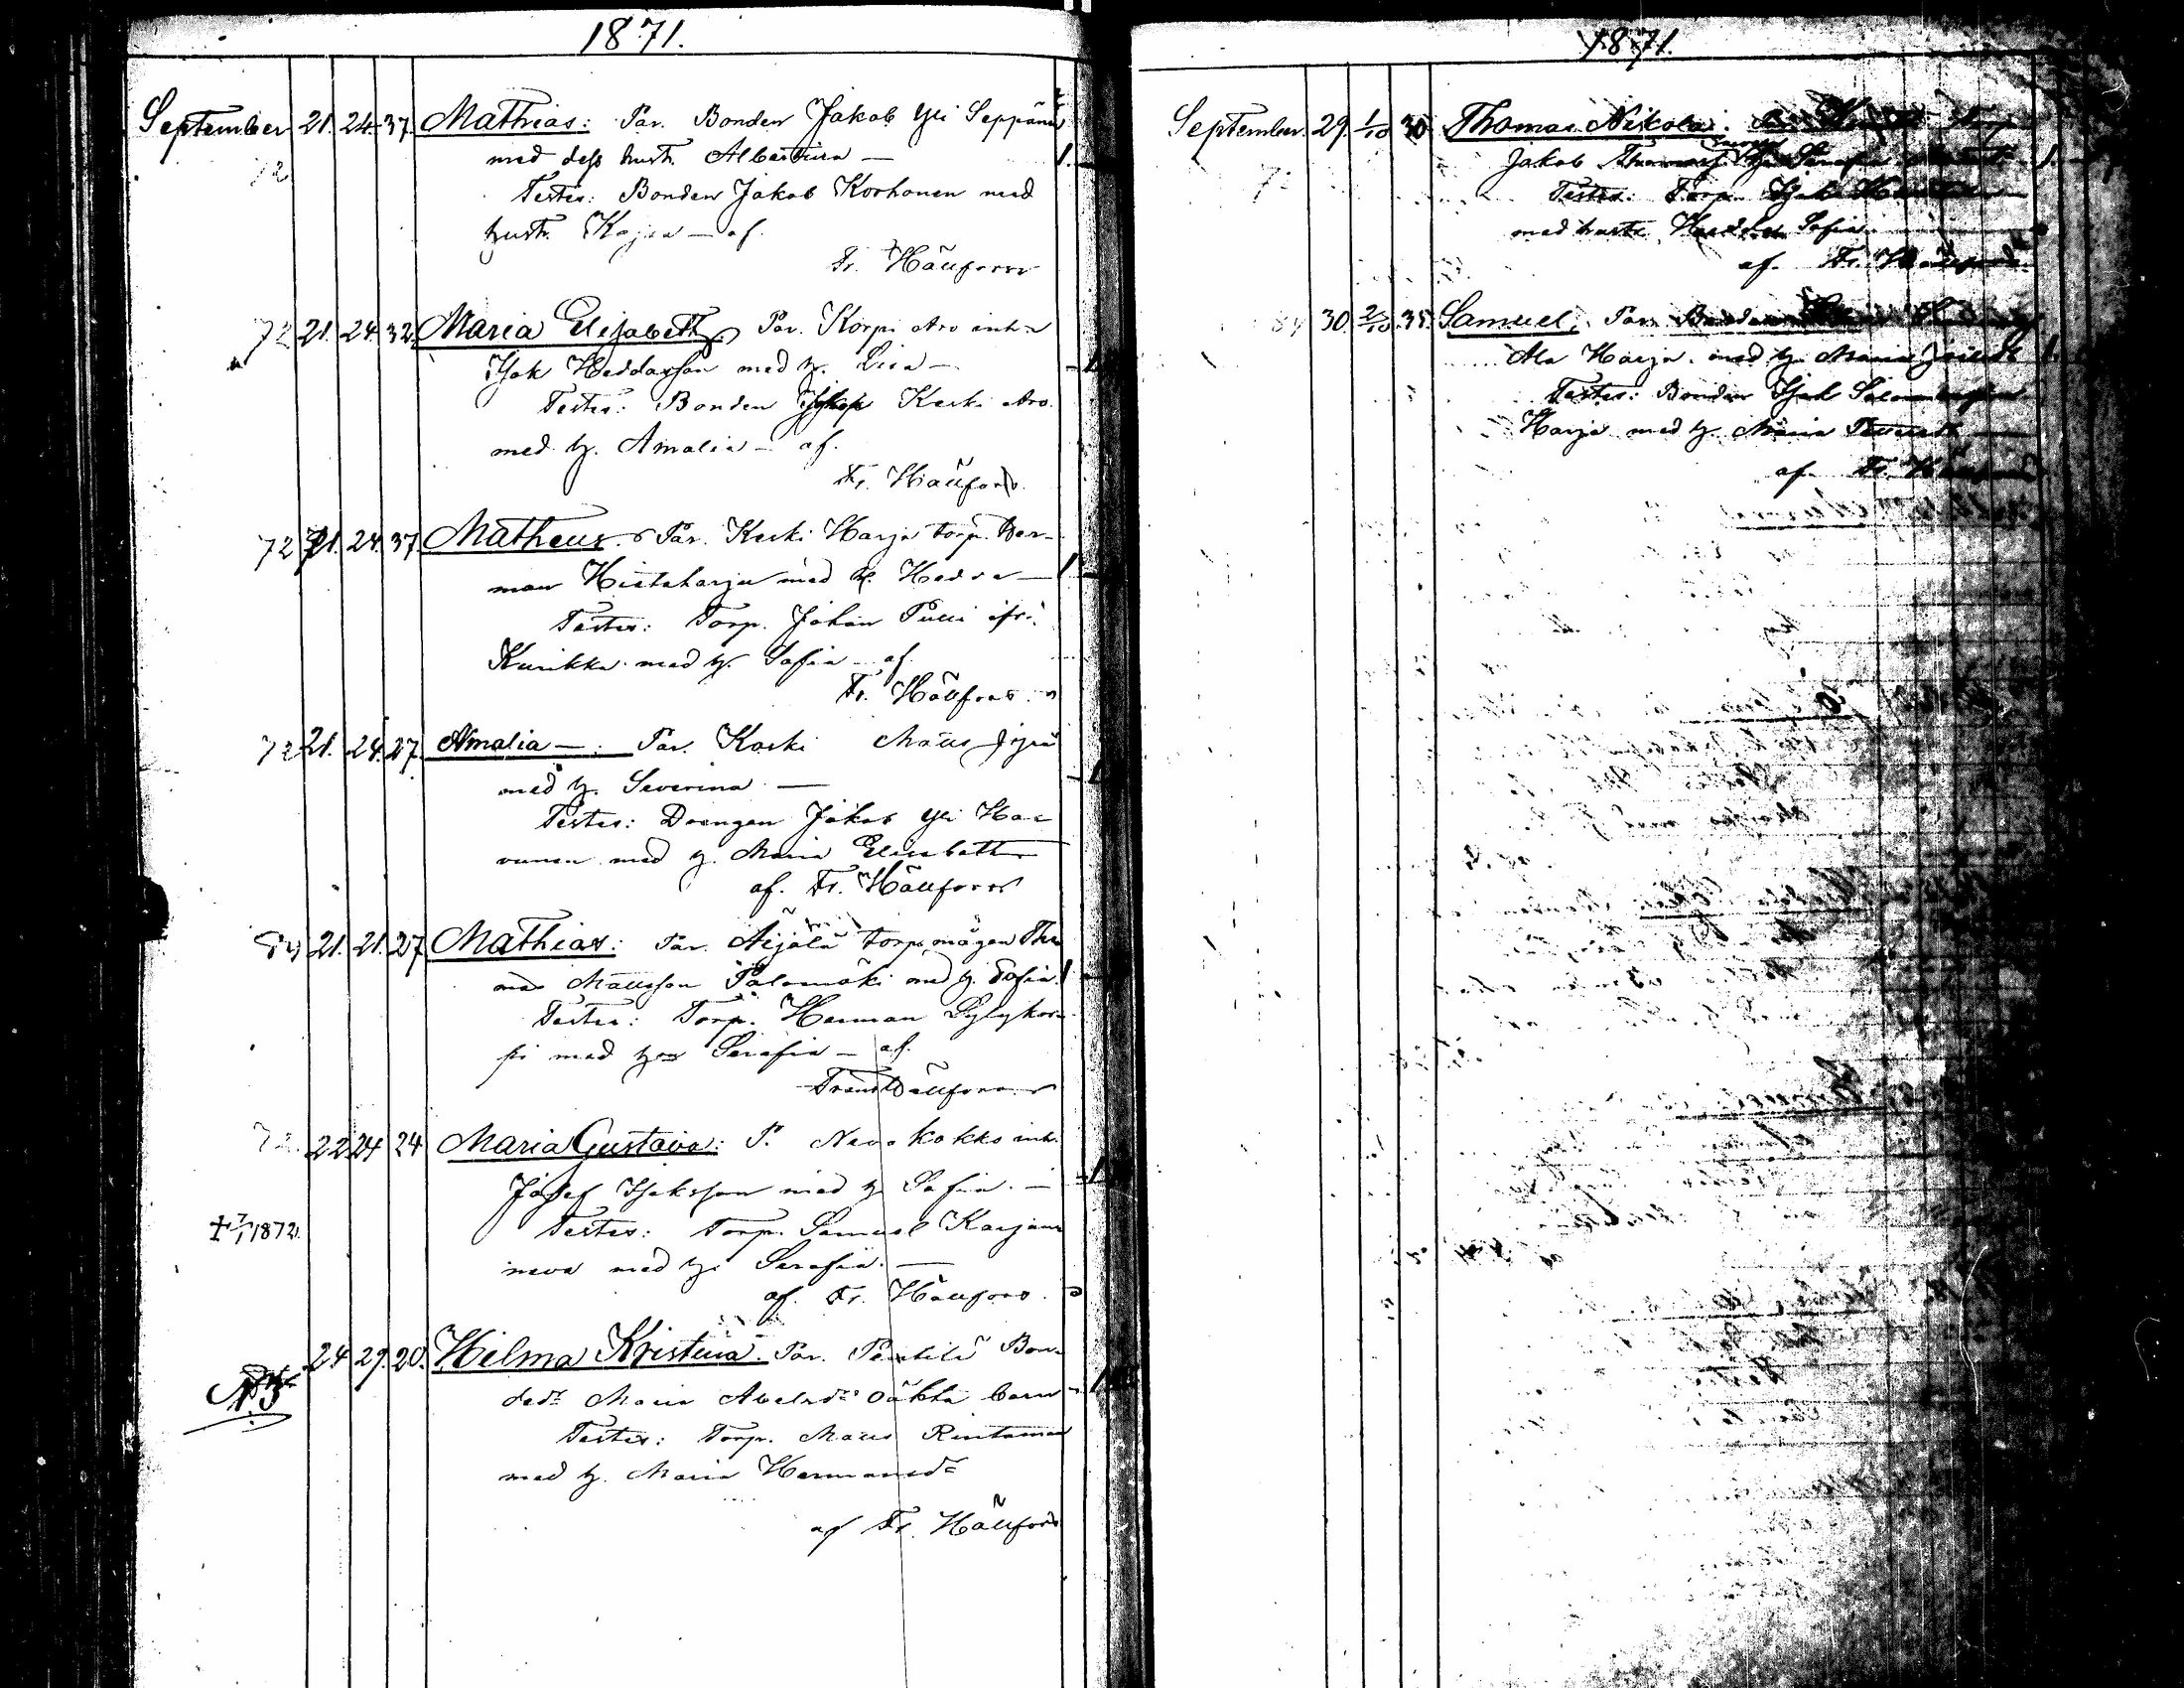 1871.
September 21. 24. 37. Mathias: Par. Bonden Jakob Yli Seppänä
72 med dess hust. Albertina — 1.
Testes: Bonden Jakob Korhonen med
hust. Kajsa — af.
Fr. Hällfors
72 21. 24. 32. Maria Elisabeth, Par. Korpi Aro inh.
Isak Heddasson med h. Lisa — 1
Testes: Bonden Keski Aro
med h. Amalia — af.
Fr. Hällfors.
72 21. 24. 37 Matheus. Par. Keski Harja torp. Her-
man Hietaharju med h. Hedda — 1
Testes: Torp. Johan Pulli ifr.
Kurikka med h. Sofia — af.
Fr. Hällfors.
72 21. 24. 27. Amalia —. Par. Koski Matts
med h. Severina — 1.
Testes: Drengen Jakob Yli Ha-
vunen med h. Maria Elisabeth
af. Fr. Hällfors
84 21. 21. 27 Mathias: Par. Äijälä torp. mågen Tho
mas Mattsson Palomäki med h. Sofia. 1
Testes: Torp. Herman Pylykor-
pi med h. Serafia — af.
Hällfors
72. 22 24 24 Maria Gustava: P. Neva Kokko inh.
Josef Isaksson med h. Sofia. — 1
+ 7/1 1872. Testes: Torp. Samuel Karjan
neva med h. Serafia. —
af. Fr. Hällfors.
24 29. 20. Hilma Kristina. Par. Penttilä Bon-
ded. Maria Abelsd. oäkta barn 1
Testes: Torp. Matts Rintamäki
med h. Maria Hermansd.
af Fr. Hällfors
1871.
September. 29. 1/10 30 Thomas Nikolai.
Jakob Serafia 1.
Testes: Torp. Isak
med hustr. Hedda Sofia
af. Fr. Hällfors
84 30. 2/10. 35. Samuel, Par. Bonden
Ala Harja. med h. Maria 1.
Testes: Bonden Isak Salomonsson
Harja med h. Maria
af. Fr. Hällfors